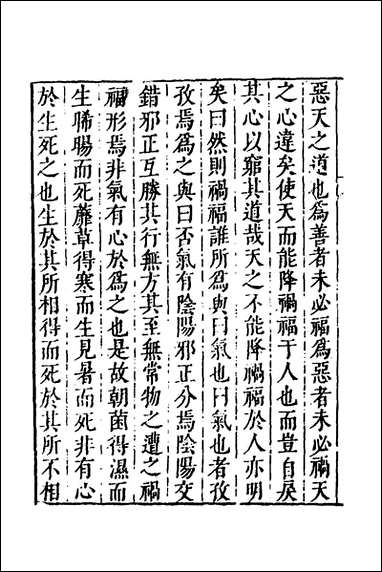 惡天之道也爲善者未必福爲惡者未必禍天
之心違矣使天而能降禍福于人也而豈自戾
其心以窮其道哉天之不能降禍福於人亦明
矣曰然則禍福誰所爲與曰氣也曰氣也者孜
孜焉爲之與曰否氣有陰陽邪正分焉陰陽交
錯邪正互勝其行無方其至無常物之遭之禍
福形焉非氣有心於爲之也是故朝菌得濕而
生晞暘而死蘼草得寒而生見暑而死非有心
於生死之也生於其所相得而死於其所不相